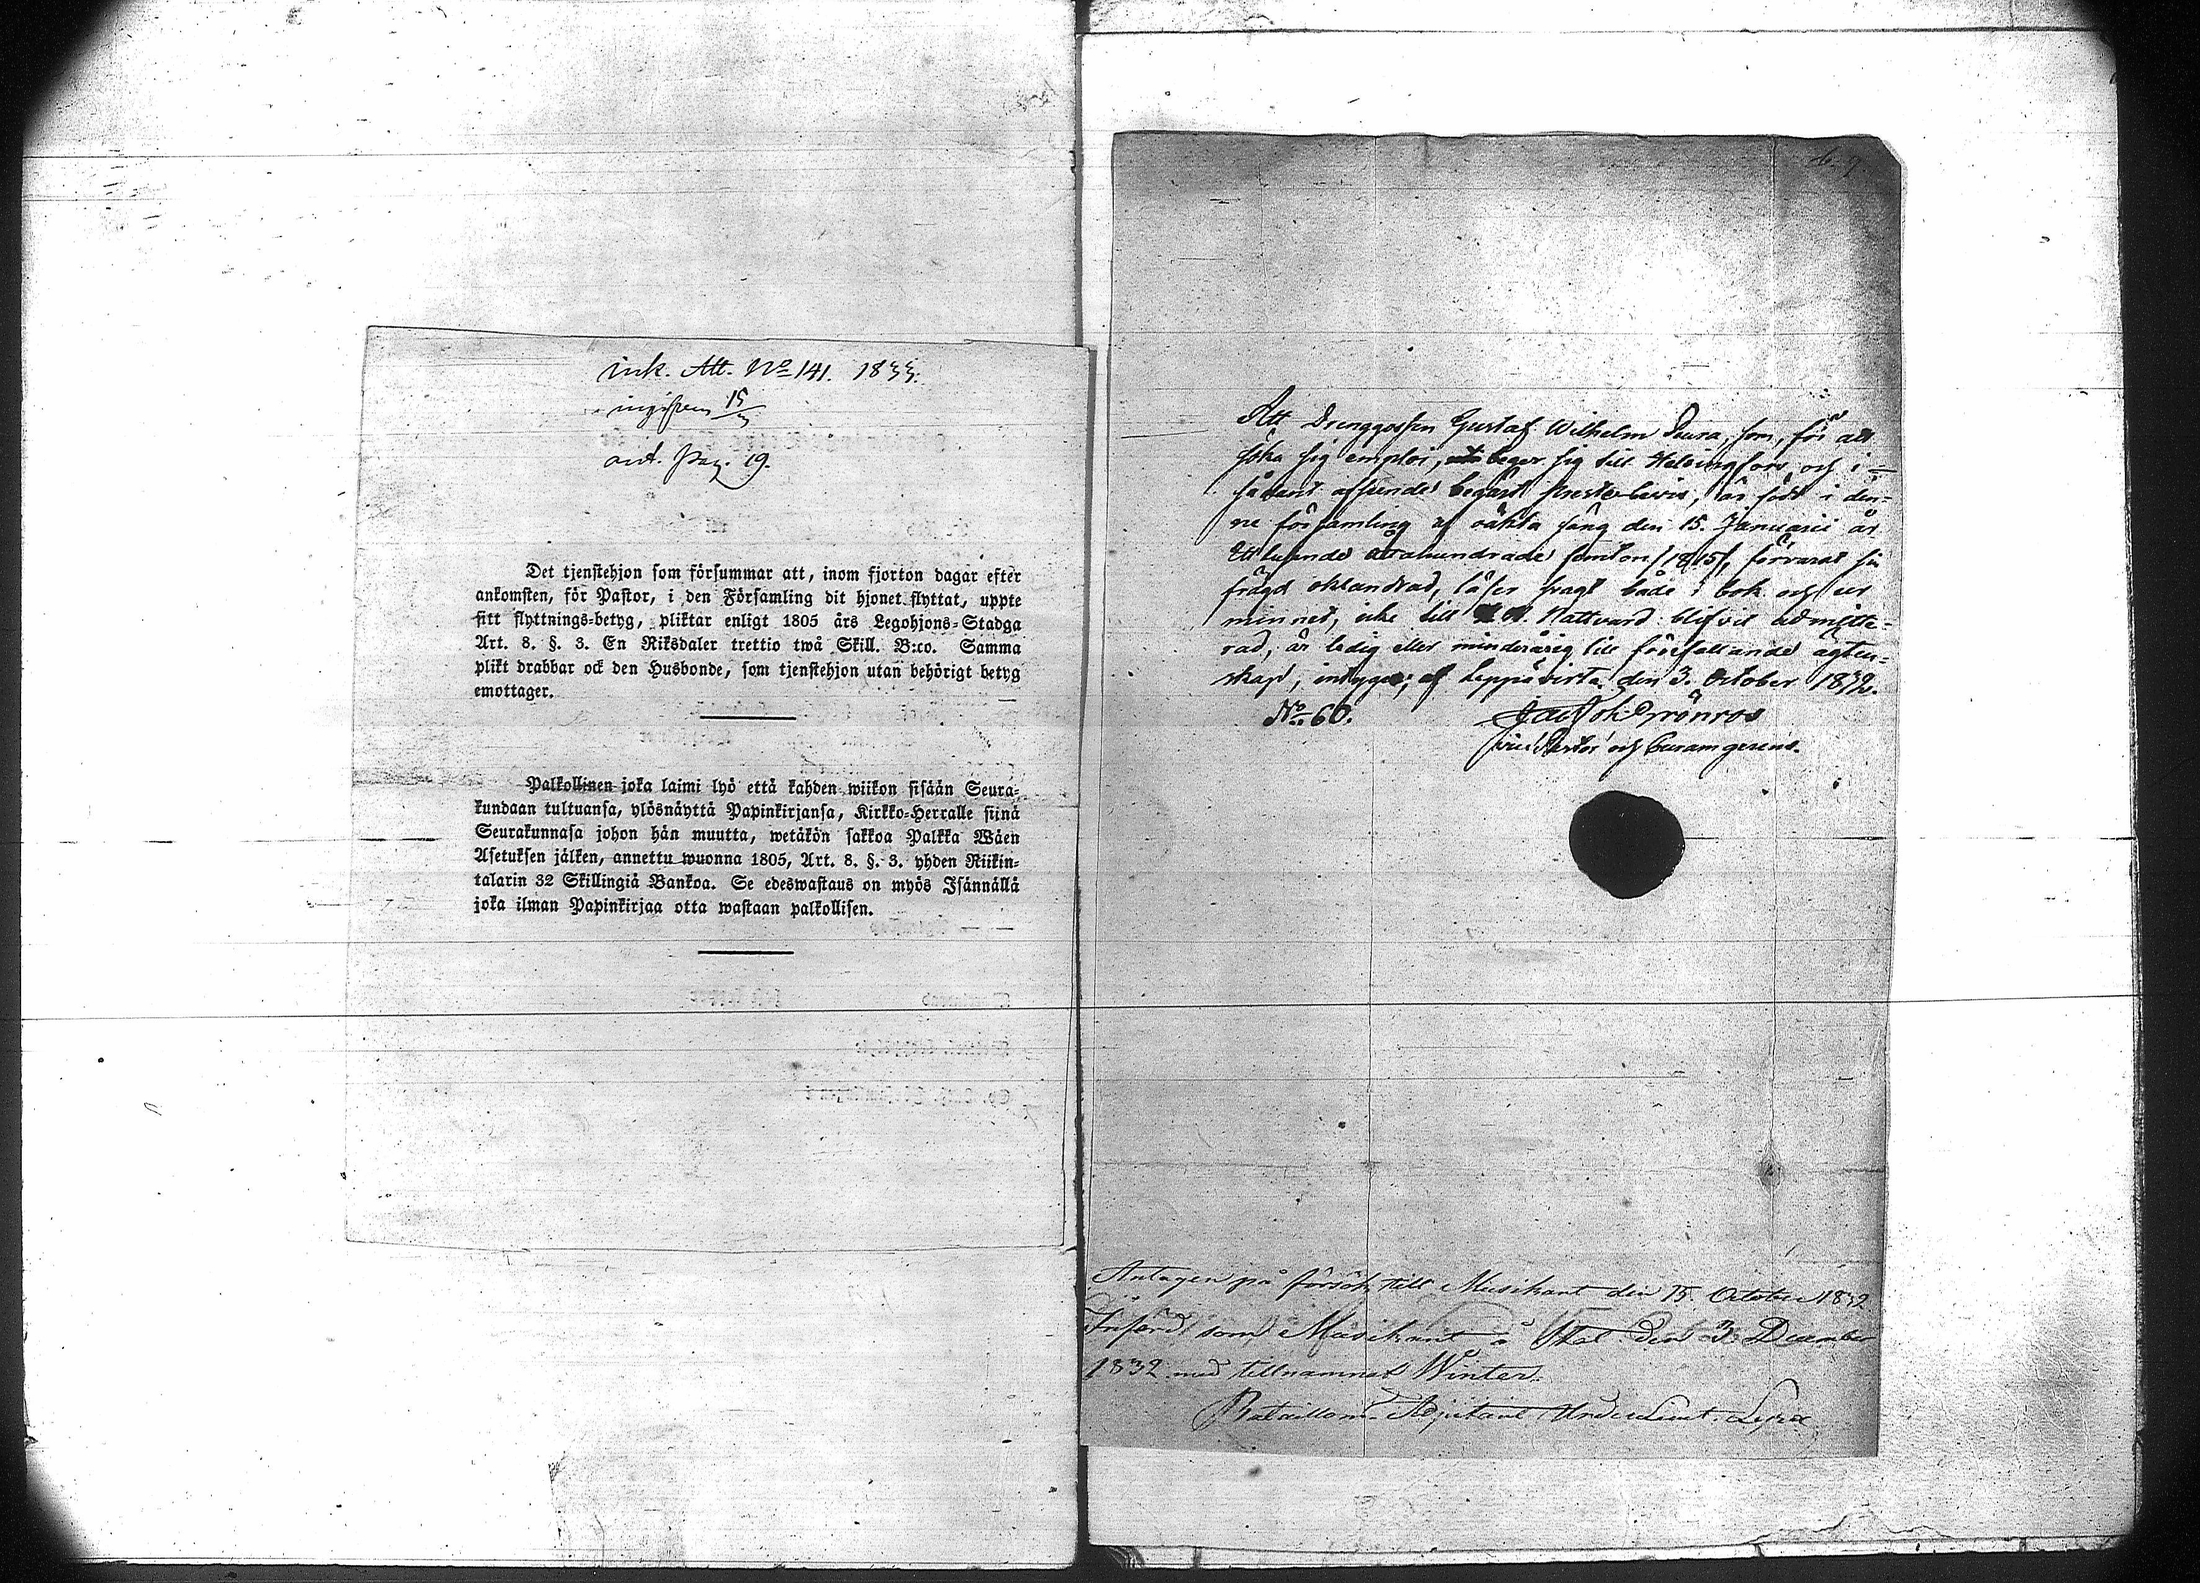 ink. Att. No 141. 1833.
15
act. pag. 19.
Det tjenstehjon som försummar att, inom fjorton dagar efter
ankomsten, för Pastor, i den Församling dit hjonet flyttat, uppte
sitt flyttnings-betyg, pliktar enligt 1805 års Legohjons-Stadga
Art. 8. §. 3. En Riksdaler trettio twå Skill. B:co. Samma
plikt drabbar ock den Husbonde, som tjenstehjon utan behörigt betyg
emottager.
Palkollinen joka laimi lyö että kahden wiikon sisään Seura-
kundaan tultuansa, ylösnäyttä Papinkirjansa, Kirkko-Herralle siinä
Seurakunnasa johon hän muutta, wetäkön sakkoa Palkka Wäen
Asetuksen jälken, annettu wuonna 1805, Art. 8. §. 3. yhden Riikin-
talarin 32 Skillingiä Bankoa. Se edeswastaus on myös Isännällä
joka ilman Papinkirjaa otta wastaan palkollisen.
Att Drenggossen Gustaf Wilhelm Duura, som, för att
söka sig emploi, beger sig till Helsingfors, och i
sådant afseende begärt prestebevis, är född i den-
ne församling af oäkta säng den 15. Januarii år
Ett tusende åttahundrade femton /1815/, förvarat sin
frägd oklandrad, läser svagt både i bok och ur
minnet, icke till H. H. Nattvard blifvit admitte-
rad, är ledig eller minderårig till förefallande ägten-
skap, intygar; af Leppävirta den 3. October 1832.
No 60. Grönros
vice Pastor och Curam gerens.
Antagen på försök till Musikant den 15 October 1832
Införd som Musikant å Stat den 3 December
1832 med tillnamnet Winter.
Bataillons Adjutant Underlieut.